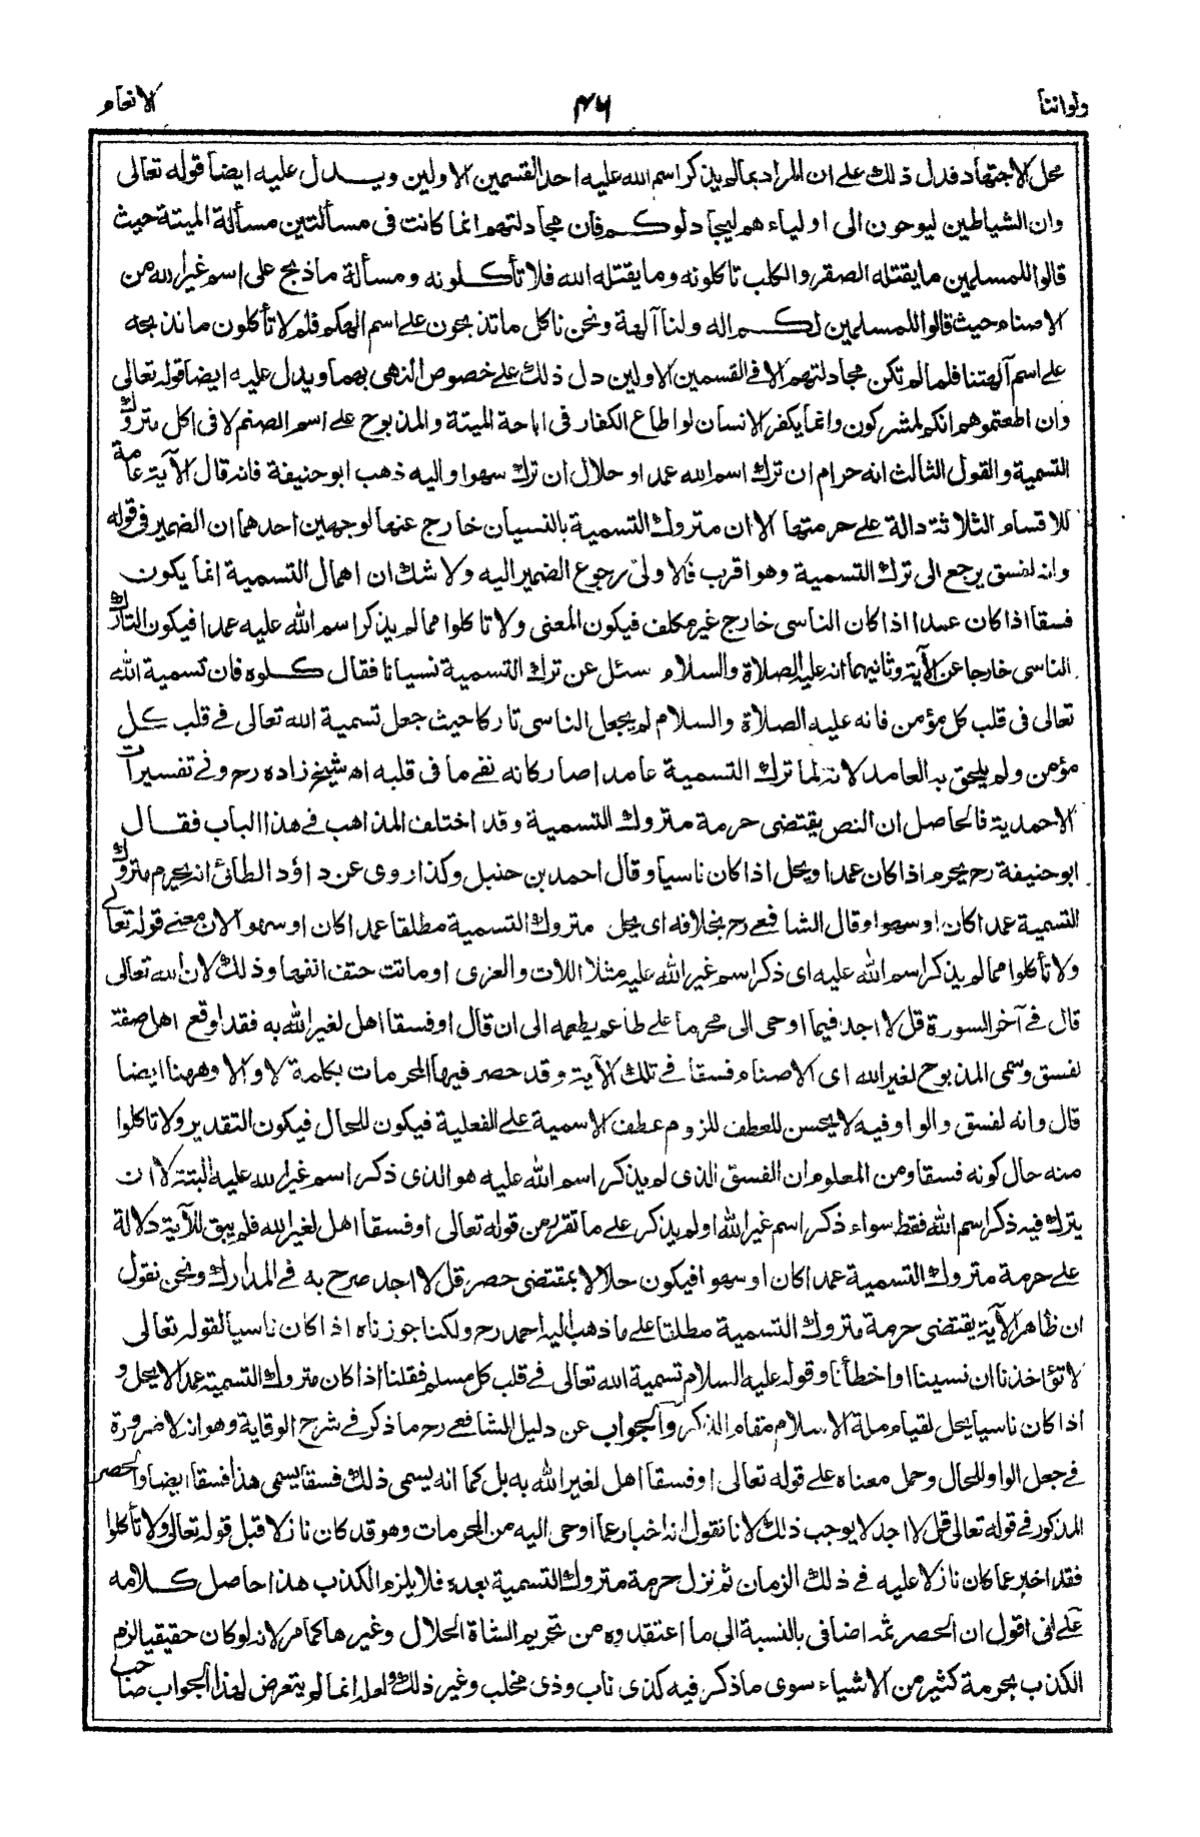 ولواننا ٣٦ الانعام
محل الاجتهاد فدل ذلك على ان المراد بمالم يذكر اسم الله عليه احد القسمين الاولين ويدل عليه ايضا قوله تعالى
وان الشياطين ليوحون الى اولياءهم ليجادلوكم فان مجادلتهم انما كانت فى مسألتين مسألة الميتة حيث
قالوا للمسلمين ما يقتله الصقر والكلب تاكلونه وما يقتله الله فلا تأكلونه ومسألة ما ذبح على اسم غير الله من
الاصنام حيث قالوا للمسلمين لكم اله ولنا آلهة ونحن ناكل ما تذبحون على اسم الهكم فلم لا تأكلون ما نذبحه
على اسم آلهتنا فلما لم تكن مجادلتهم الا فى القسمين الاولين دل ذلك على خصوص النهى بهما ويدل عليه ايضا قوله تعالى
وان اطعتموهم انكم لمشركون وانما يكفر الانسان لو اطاع الكفار فى اباحة الميتة والمذبوح على اسم الصنم لا فى اكل متروك
التسمية والقول الثالث انه حرام ان ترك اسم الله عمدا وحلال ان ترك سهوا واليه ذهب ابو حنيفة فانه قال الآية عامة
للاقسام الثلاثة دالة على حرمتها الا ان متروك التسمية بالنسيان خارج عنها لوجهين احدهما ان الضمير فى قوله
وانه لفسق يرجع الى ترك التسمية وهو اقرب فالاولى رجوع الضمير اليه ولا شك ان اهمال التسمية انما يكون
فسقا اذا كان عمدا اذا كان الناسى خارج غير مكلف فيكون المعنى ولا تاكلوا مما لم يذكر اسم الله عليه عمدا فيكون التارك
الناسى خارجا عن الآية وثانيهما انه عليه الصلاة والسلام سئل عن ترك التسمية نسيانا فقال كلوه فان تسمية الله
تعالى فى قلب كل مؤمن فانه عليه الصلاة والسلام لم يجعل الناسى تاركا حيث جعل تسمية الله تعالى فى قلب كل
مؤمن ولم يلحق به العامد لانه لما ترك التسمية عامدا صار كانه نفى ما فى قلبه اه شيخ زاده رح وفى تفسيرات
الاحمدية فالحاصل ان النص يقتضى حرمة متروك التسمية وقد اختلف المذاهب فى هذا الباب فقال
ابو حنيفة رح يحرم اذا كان عمدا ويحل اذا كان ناسيا وقال احمد بن حنبل وكذا روى عن داؤد الطائى انه يحرم متروك
التسمية عمدا كان او سهوا وقال الشافعى رح بخلافه اى يحل متروك التسمية مطلقا عمدا كان او سهوا لان معنى قوله تعالى
ولا تأكلوا مما لم يذكر اسم الله عليه اى ذكر اسم غير الله عليه مثلا اللات والعزى او ماتت حتف انفها وذلك لان الله تعالى
قال فى آخر السورة قل لا اجد فيما اوحى الى محرما على طاعم يطعمه الى ان قال او فسقا اهل لغير الله به فقد اوقع اهل صفة
لفسق وسمى المذبوح لغير الله اى الاصنام فسقا فى تلك الآية وقد حصر فيها المحرمات بكلمة لا والا وههنا ايضا
قال وانه لفسق والواو فيه لا يحسن للعطف للزوم عطف الاسمية على الفعلية فيكون للحال فيكون التقدير ولا تاكلوا
منه حال كونه فسقا ومن المعلوم ان الفسق الذى لم يذكر اسم الله عليه هو الذى ذكر اسم غير الله عليه البتة لا ان
يترك فيه ذكر اسم الله فقط سواء ذكر اسم غير الله اولم يذكر على ما تقرر من قوله تعالى او فسقا اهل لغير الله فلم يبق للآية دلالة
على حرمة متروك التسمية عمدا كان او سهوا فيكون حلالا بمقتضى حصر قل لا اجد صرح به فى المدارك ونحن نقول
ان ظاهر الآية يقتضى حرمة متروك التسمية مطلقا على ما ذهب اليه احمد رح ولكنا جوزناه اذا كان ناسيا لقوله تعالى
لا تؤاخذنا ان نسينا او اخطأنا وقوله عليه السلام تسمية الله تعالى فى قلب كل مسلم فقلنا اذا كان متروك التسمية عمدا لا يحل و
اذا كان ناسيا يحل لقيام ملة الاسلام مقام الذكر والجواب عن دليل الشافعى رح ما ذكر فى شرح الوقاية وهو انه لا ضرورة
فى جعل الواو للحال وحمل معناه على قوله تعالى او فسقا اهل لغير الله به بل كما انه يسمى ذلك فسقا يسمى هذا فسقا ايضا والحصر
المذكور فى قوله تعالى قل لا اجد لا يوجب ذلك لانا نقول انه اخبار عما اوحى اليه من المحرمات وهو قد كان نازلا قبل قوله تعالى ولا تأكلوا
فقد اخبر عما كان نازلا عليه فى ذلك الزمان ثم نزل حرمة متروك التسمية بعده فلا يلزم الكذب هذا حاصل كلامه
على انى اقول ان الحصر ثمه اضافى بالنسبة الى ما اعتقدوه من تحريم الشاة الحلال وغيرها كما مر لانه لو كان حقيقيا لزم
الكذب بحرمة كثير من الاشياء سوى ما ذكر فيه كذى ناب وذى مخلب وغير ذلك ولعله انما لم يتعرض لهذا الجواب صاحب